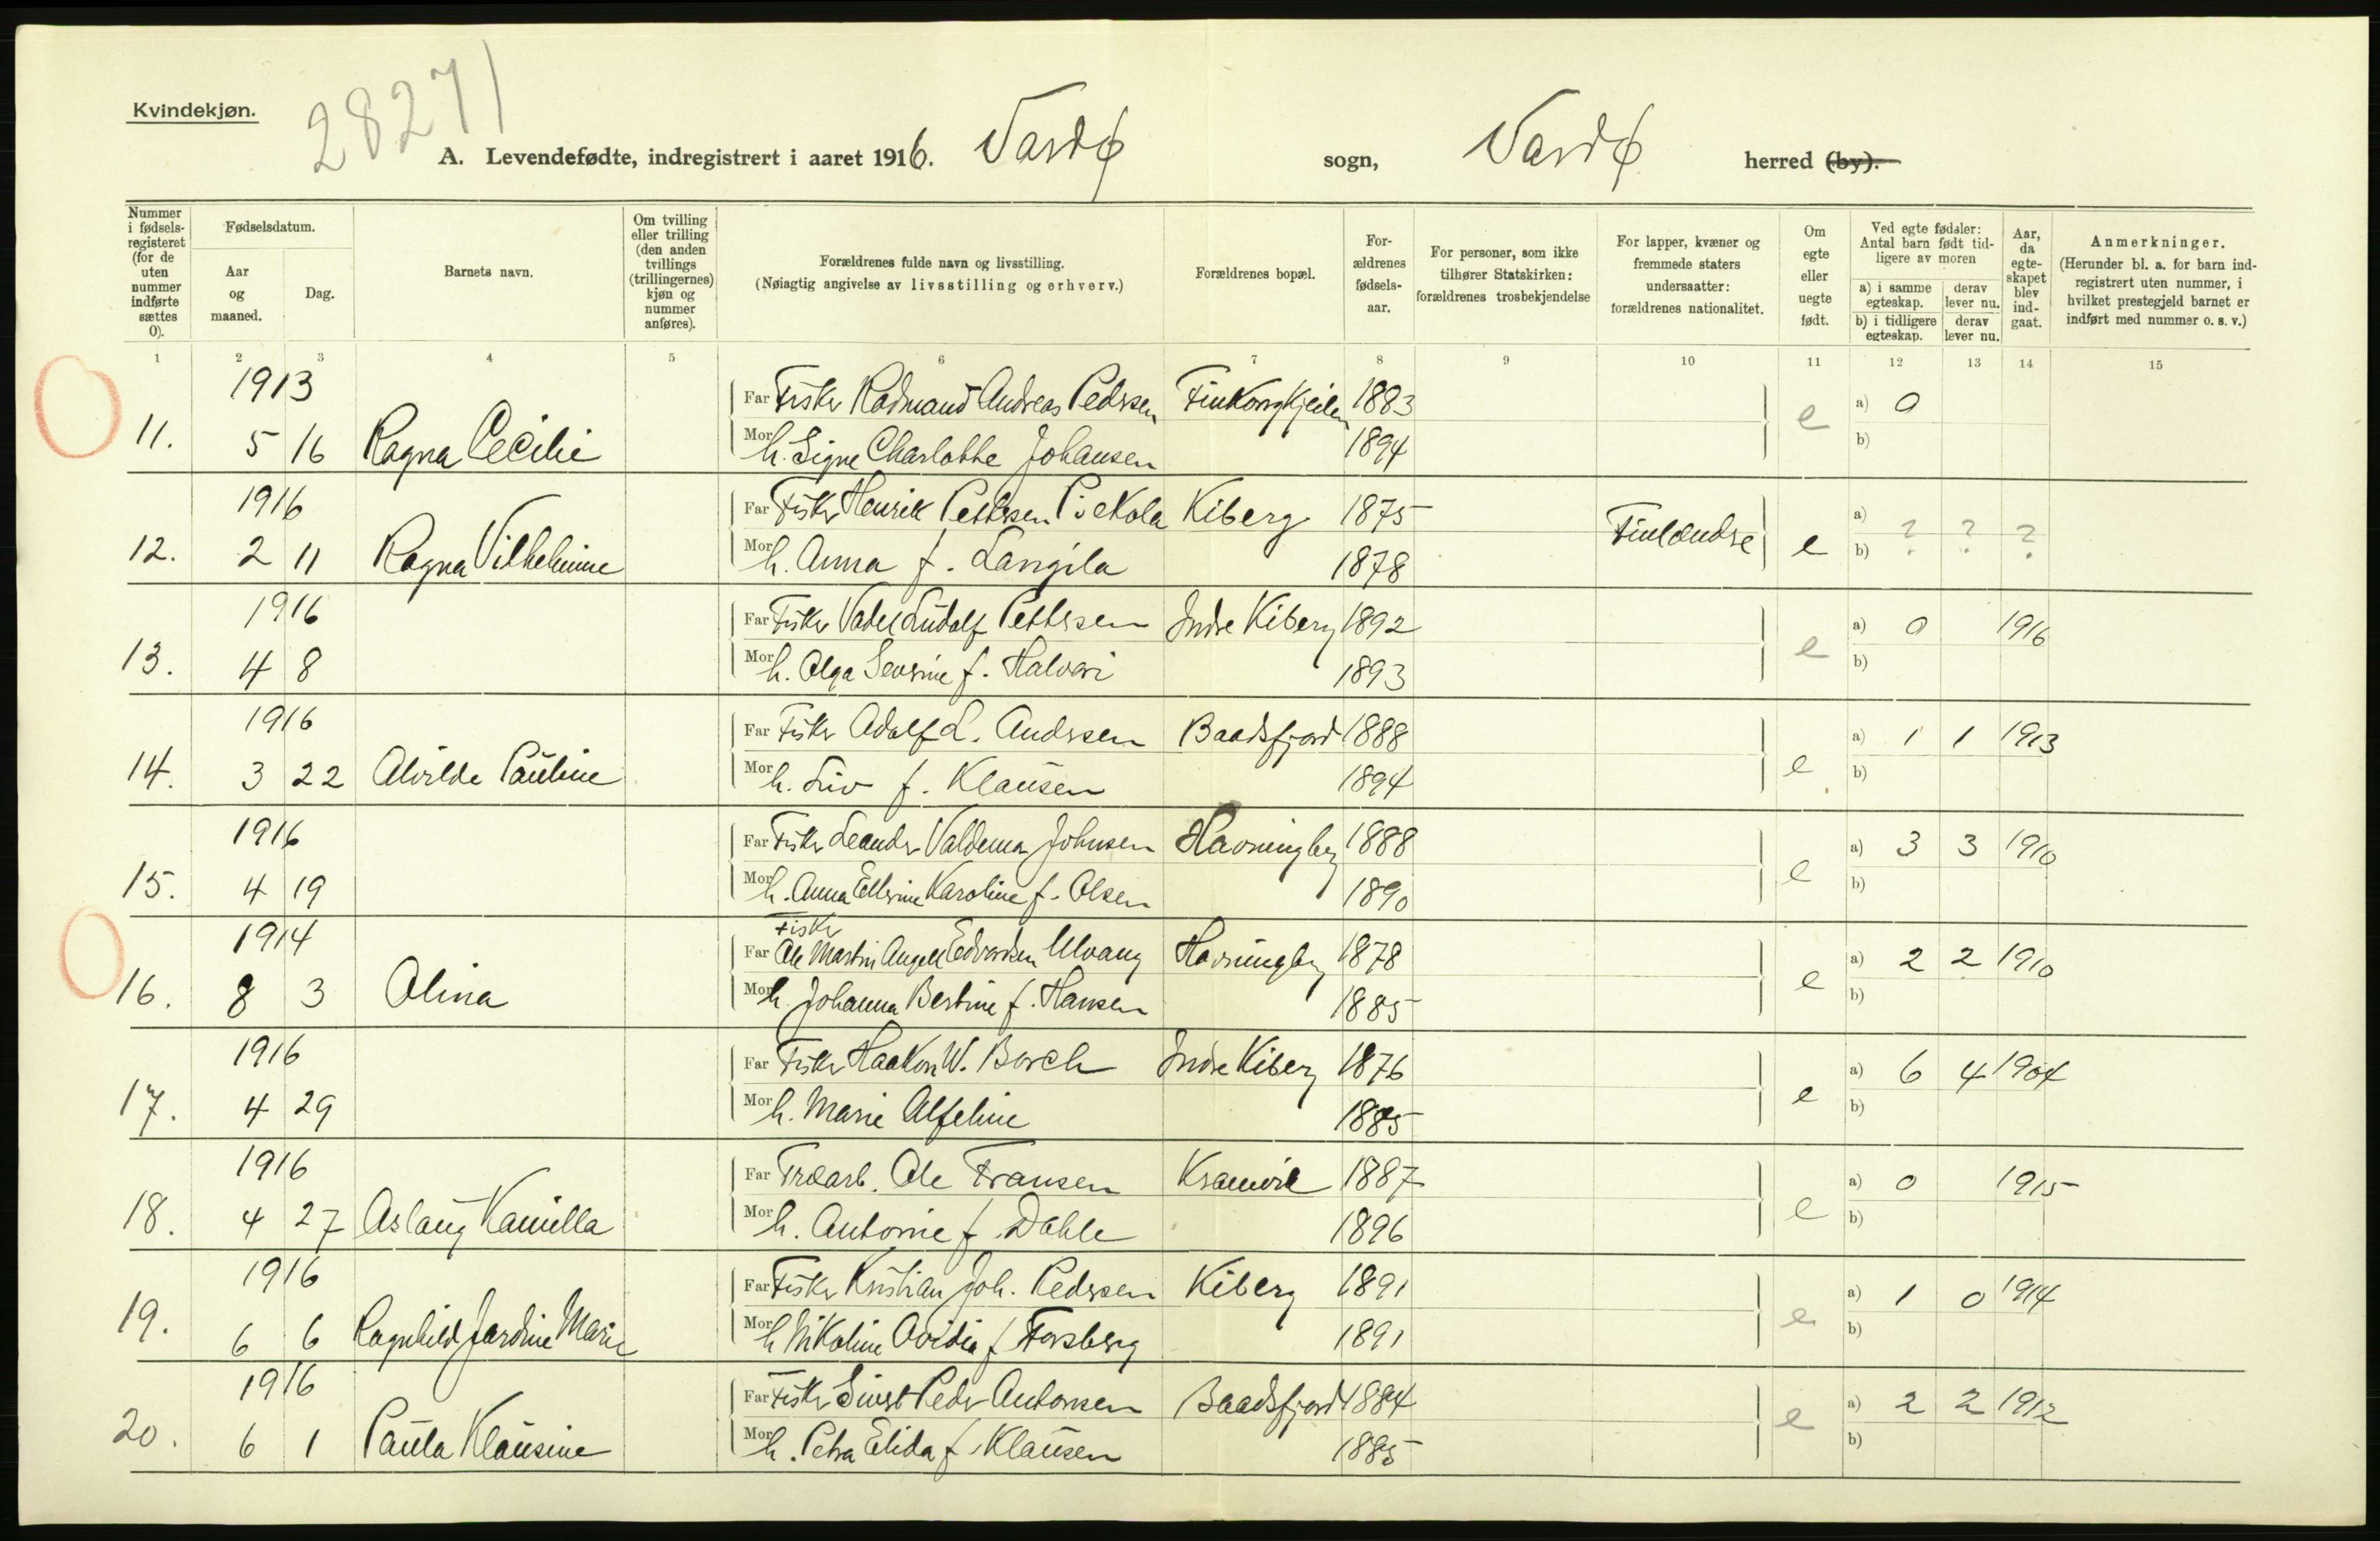 Kvindekjøn.
28271
A. Levendefødte, indregistrert i aaret 1916. Vardø sogn, Vardø herred (by).
Nummer i fødsels-registeret (for de uten nummer indførte sættes 0).
Fødselsdatum.
Aar og maaned.
Dag.
Barnets navn.
Om tvilling eller trilling (den anden tvillings (trillingernes) kjøn og nummer anføres).
Forældrenes fulde navn og livsstilling.
(Nøiagtig angivelse av livsstilling og erhverv.)
Forældrenes bopæl.
For-ældrenes fødsels-aar.
For personer, som ikke tilhører Statskirken: forældrenes trosbekjendelse
For lapper, kvæner og fremmede staters undersaatter: forældrenes nationalitet.
Om egte eller uegte født.
Ved egte fødsler: Antal barn født tid-ligere av moren
a) i samme egteskap. derav lever nu.
b) i tidligere egteskap. derav lever nu.
Aar, da egte-skapet blev ind-gaat.
Anmerkninger.
(Herunder bl. a. for barn ind-registrert uten nummer, i hvilket prestegjeld barnet er indført med nummer o. s. v.)
1 2 3 4 5 6 7 8 9 10 11 12 13 14 15
1913 Far Fisker Radmand Andreas Pedersen Finkongkjeilen 1883 a) 0
11. 5 16 Ragna Cecilie Mor h. Signe Charlotte Johansen 1894 e b)
1916 Far Fisker Henrik Pettersen Piekola Kiberg 1875 Finlændere a) ? ? ?
12. 2 11 Ragna Vilhelmine Mor h. Anna f. Langila 1878 e b)
1916 Far Fisker Ludolf Pettersen Indre Kiberg 1892 a) 0 1916
13. 4 8 Mor h. Olga Severine f. Halvari 1893 e b)
1916 Far Fisker Adolf L. Andersen Baadsfjord 1888 a) 1 1 1913
14. 3 22 Alvilde Pauline Mor h. Liv f. Klausen 1894 e b)
1916 Far Fisker Leander Valdemar Johnsen Havningberg 1888 a) 3 3 1910
15. 4 19 Mor h. Anna Ellerine Karoline f. Olsen 1890 e b)
1914 Far Fisker Ole Martin Angell Edvardsen Ulvang Havningberg 1878 a) 2 2 1910
16. 8 3 Olina Mor h. Johanna Bertine f. Hansen 1885 e b)
1916 Far Fisker Haakon W. Borch Indre Kiberg 1876 a) 6 4 1904
17. 4 29 Mor h. Marie Alfeline 1885 e b)
1916 Far Træarb. Ole Fransen Kramvik 1887 a) 0 1915
18. 4 27 Aslaug Kamilla Mor h. Antonie f. Dahle 1896 e b)
1916 Far Fisker Kristian Joh. Pedersen Kiberg 1891 a) 1 0 1914
19. 6 6 Ragnhild Jardine Marie Mor h. Nikoline Ovidia f. Forsberg 1891 e b)
1916 Far Fisker Sivert Peder Antonsen Baadsfjord 1884 a) 2 2 1912
20. 6 1 Paula Klausine Mor h. Petra Elida f. Klausen 1885 e b)